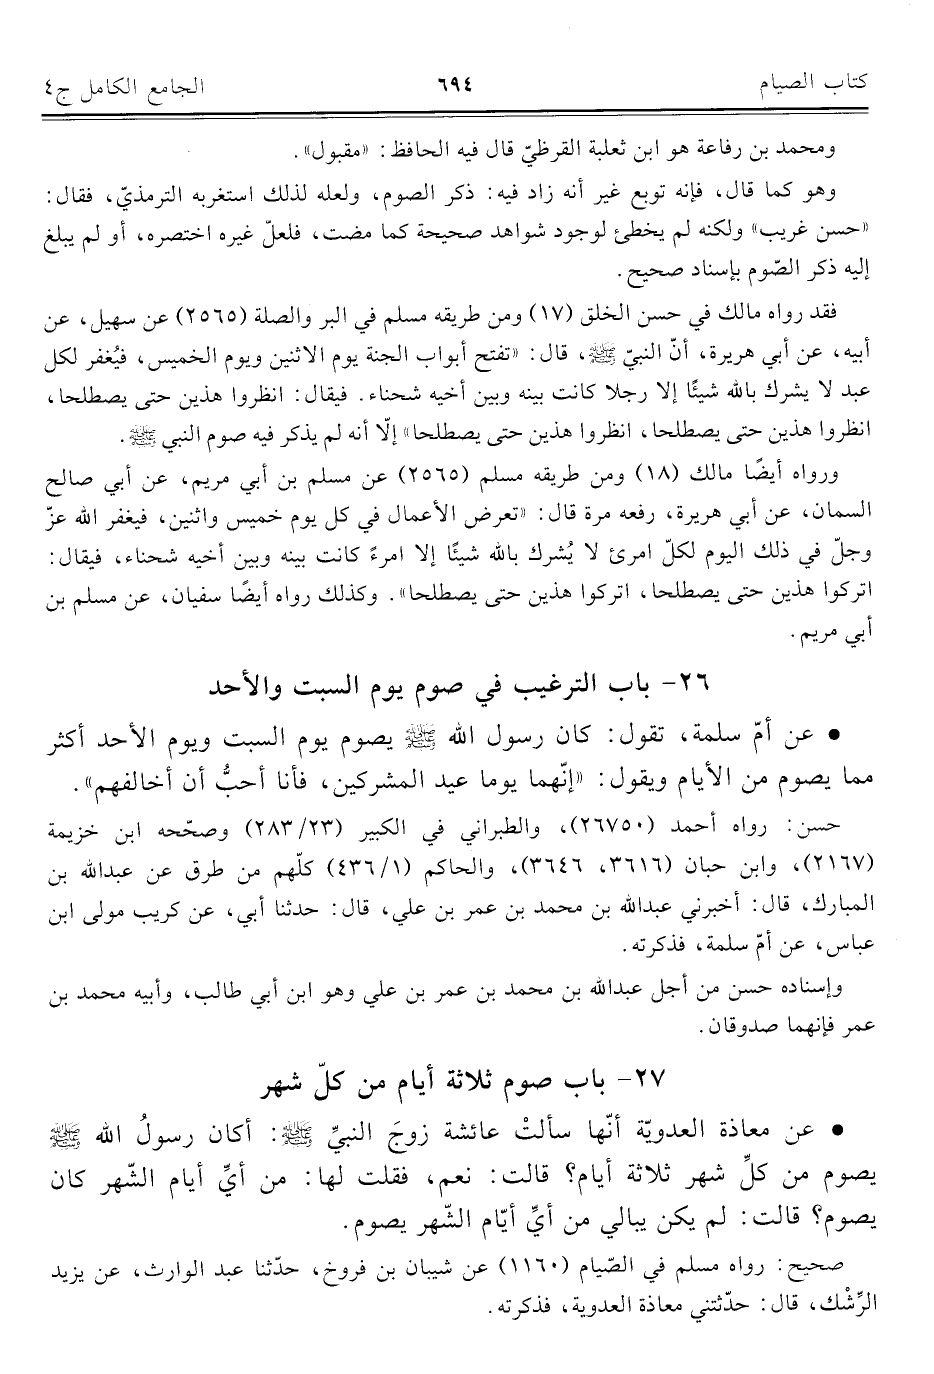 كتاب الصيام ٦٩٤ الجامع الكامل ج٤
ومحمد بن رفاعة هو ابن ثعلبة القرظيّ قال فيه الحافظ: «مقبول».
وهو كما قال، فإنه توبع غير أنه زاد فيه: ذكر الصوم، ولعله لذلك استغربه الترمذيّ، فقال:
«حسن غريب» ولكنه لم يخطئ لوجود شواهد صحيحة كما مضت، فلعلّ غيره اختصره، أو لم يبلغ
إليه ذكر الصّوم بإسناد صحيح.
فقد رواه مالك في حسن الخلق (١٧) ومن طريقه مسلم في البر والصلة (٢٥٦٥) عن سهيل، عن
أبيه، عن أبي هريرة، أنّ النبيّ ﷺ، قال: «تفتح أبواب الجنة يوم الاثنين ويوم الخميس، فيُغفر لكل
عبد لا يشرك بالله شيئًا إلا رجلا كانت بينه وبين أخيه شحناء. فيقال: انظروا هذين حتى يصطلحا،
انظروا هذين حتى يصطلحا، انظروا هذين حتى يصطلحا» إلّا أنه لم يذكر فيه صوم النبي ﷺ.
ورواه أيضًا مالك (١٨) ومن طريقه مسلم (٢٥٦٥) عن مسلم بن أبي مريم، عن أبي صالح
السمان، عن أبي هريرة، رفعه مرة قال: «تعرض الأعمال في كل يوم خميس واثنين، فيغفر الله عزّ
وجلّ في ذلك اليوم لكلّ امرئ لا يُشرك بالله شيئًا إلا امرءً كانت بينه وبين أخيه شحناء، فيقال:
اتركوا هذين حتى يصطلحا، اتركوا هذين حتى يصطلحا». وكذلك رواه أيضًا سفيان، عن مسلم بن
أبي مريم.
٢٦- باب الترغيب في صوم يوم السبت والأحد
• عن أمّ سلمة، تقول: كان رسول الله ﷺ يصوم يوم السبت ويوم الأحد أكثر
مما يصوم من الأيام ويقول: «إنّهما يوما عيد المشركين، فأنا أحبُّ أن أخالفهم».
حسن: رواه أحمد (٢٦٧٥٠)، والطبراني في الكبير (٢٣/ ٢٨٣) وصحّحه ابن خزيمة
(٢١٦٧)، وابن حبان (٣٦١٦، ٣٦٤٦)، والحاكم (١/ ٤٣٦) كلّهم من طرق عن عبدالله بن
المبارك، قال: أخبرني عبدالله بن محمد بن عمر بن علي، قال: حدثنا أبي، عن كريب مولى ابن
عباس، عن أمّ سلمة، فذكرته.
وإسناده حسن من أجل عبدالله بن محمد بن عمر بن علي وهو ابن أبي طالب، وأبيه محمد بن
عمر فإنهما صدوقان.
٢٧- باب صوم ثلاثة أيام من كلّ شهر
• عن معاذة العدويّة أنّها سألتْ عائشة زوجَ النبيِّ ﷺ: أكان رسولُ الله ﷺ
يصوم من كلِّ شهر ثلاثة أيام؟ قالت: نعم، فقلت لها: من أيِّ أيام الشّهر كان
يصوم؟ قالت: لم يكن يبالي من أيِّ أيّام الشّهر يصوم.
صحيح: رواه مسلم في الصّيام (١١٦٠) عن شيبان بن فروخ، حدّثنا عبد الوارث، عن يزيد
الرِّشْك، قال: حدّثتني معاذة العدوية، فذكرته.